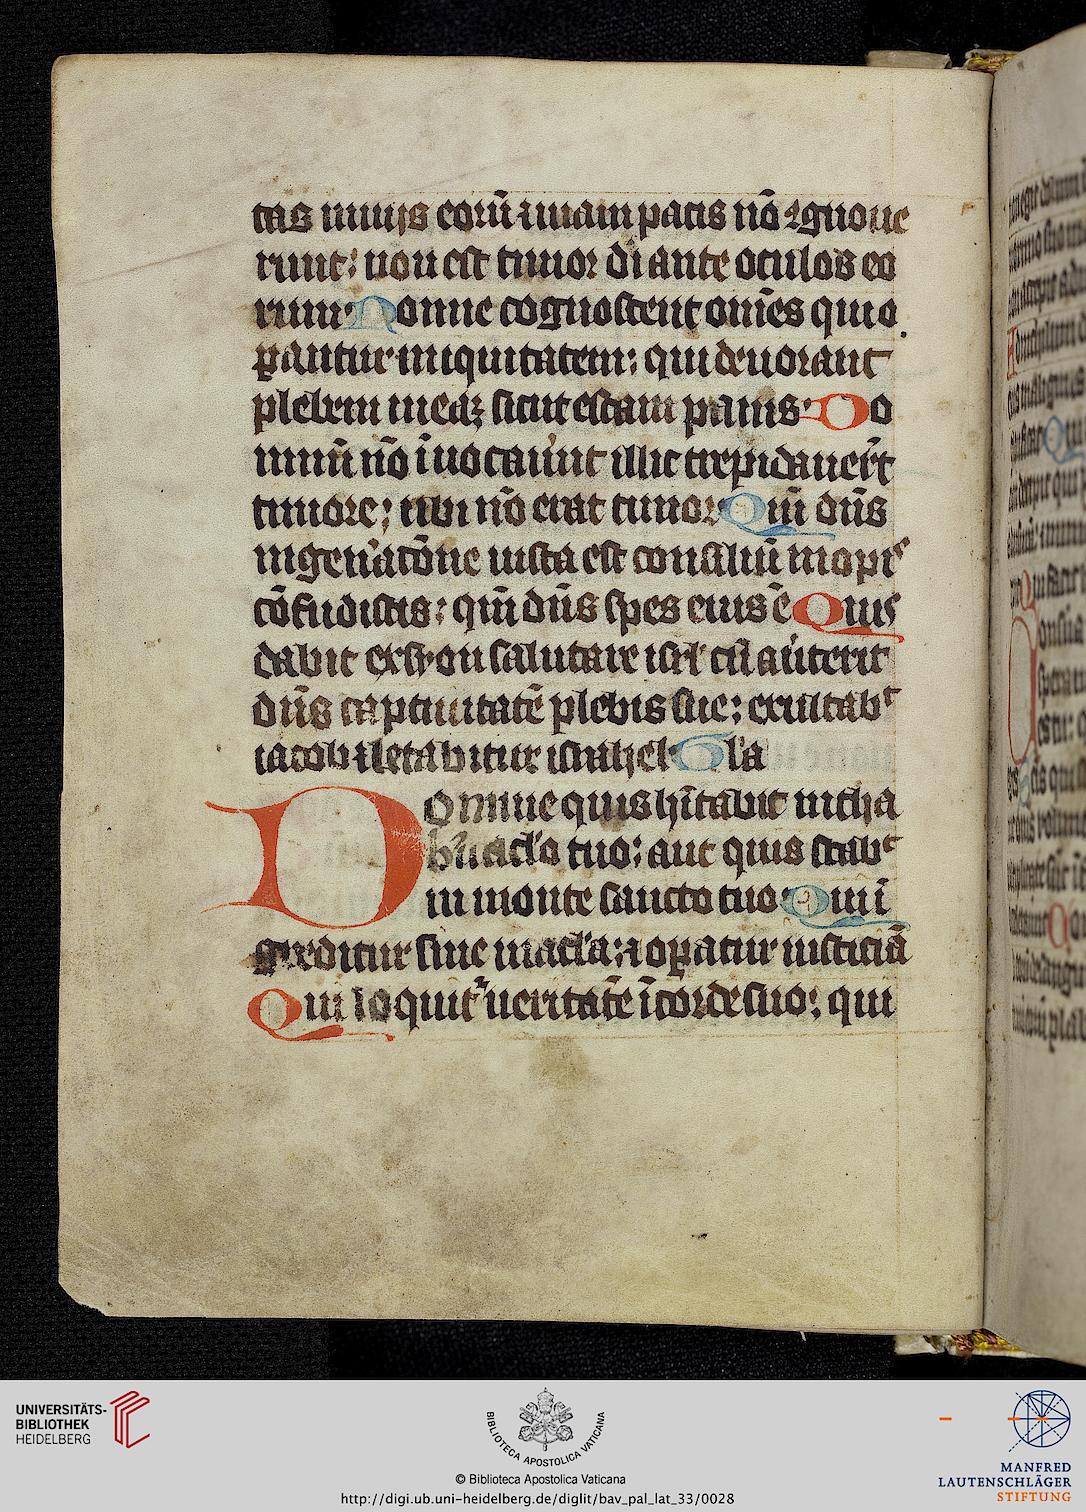 tas in uijs eoꝝ̄ ⁊ uiam pacis nō cgnoue
runt: non est timor di ante oculos eo
rum Nonne cognoscent om̄es qui o
ꝑantur iniquitatem: qui deuorant
plebem meaꝫ sicut escam panis Do
minū nō īuocauīnt illic trepidauer̄t
timore: ubi nō erat timor Qm̄ dn̄s
in gen̄atōne iusta est consiliū inopis
cōfudistis: qm̄ dn̄s spes eius ē Quis
dabit ex syon salutare isrl̄ cū aūterit
dn̄s captiuitatē plebis sue: exultabᵗ
iacob ⁊ letabitur israhel Gl̄a
Domine quis hītabit in tha
bn̄acl̄o tuo: aut quis scabᵗ
in monte sancto tuo Qui ī
greditur sine macl̄a: ⁊ oꝑatur iusticiā
Qui loquitᷣ ueritatē ī corde suo: qui
UNIVERSITÄTS-
BIBLIOTHEK
HEIDELBERG
BIBLIOTECA APOSTOLICA VATICANA
© Biblioteca Apostolica Vaticana
http://digi.ub.uni-heidelberg.de/diglit/bav_pal_lat_33/0028
MANFRED
LAUTENSCHLÄGER
STIFTUNG